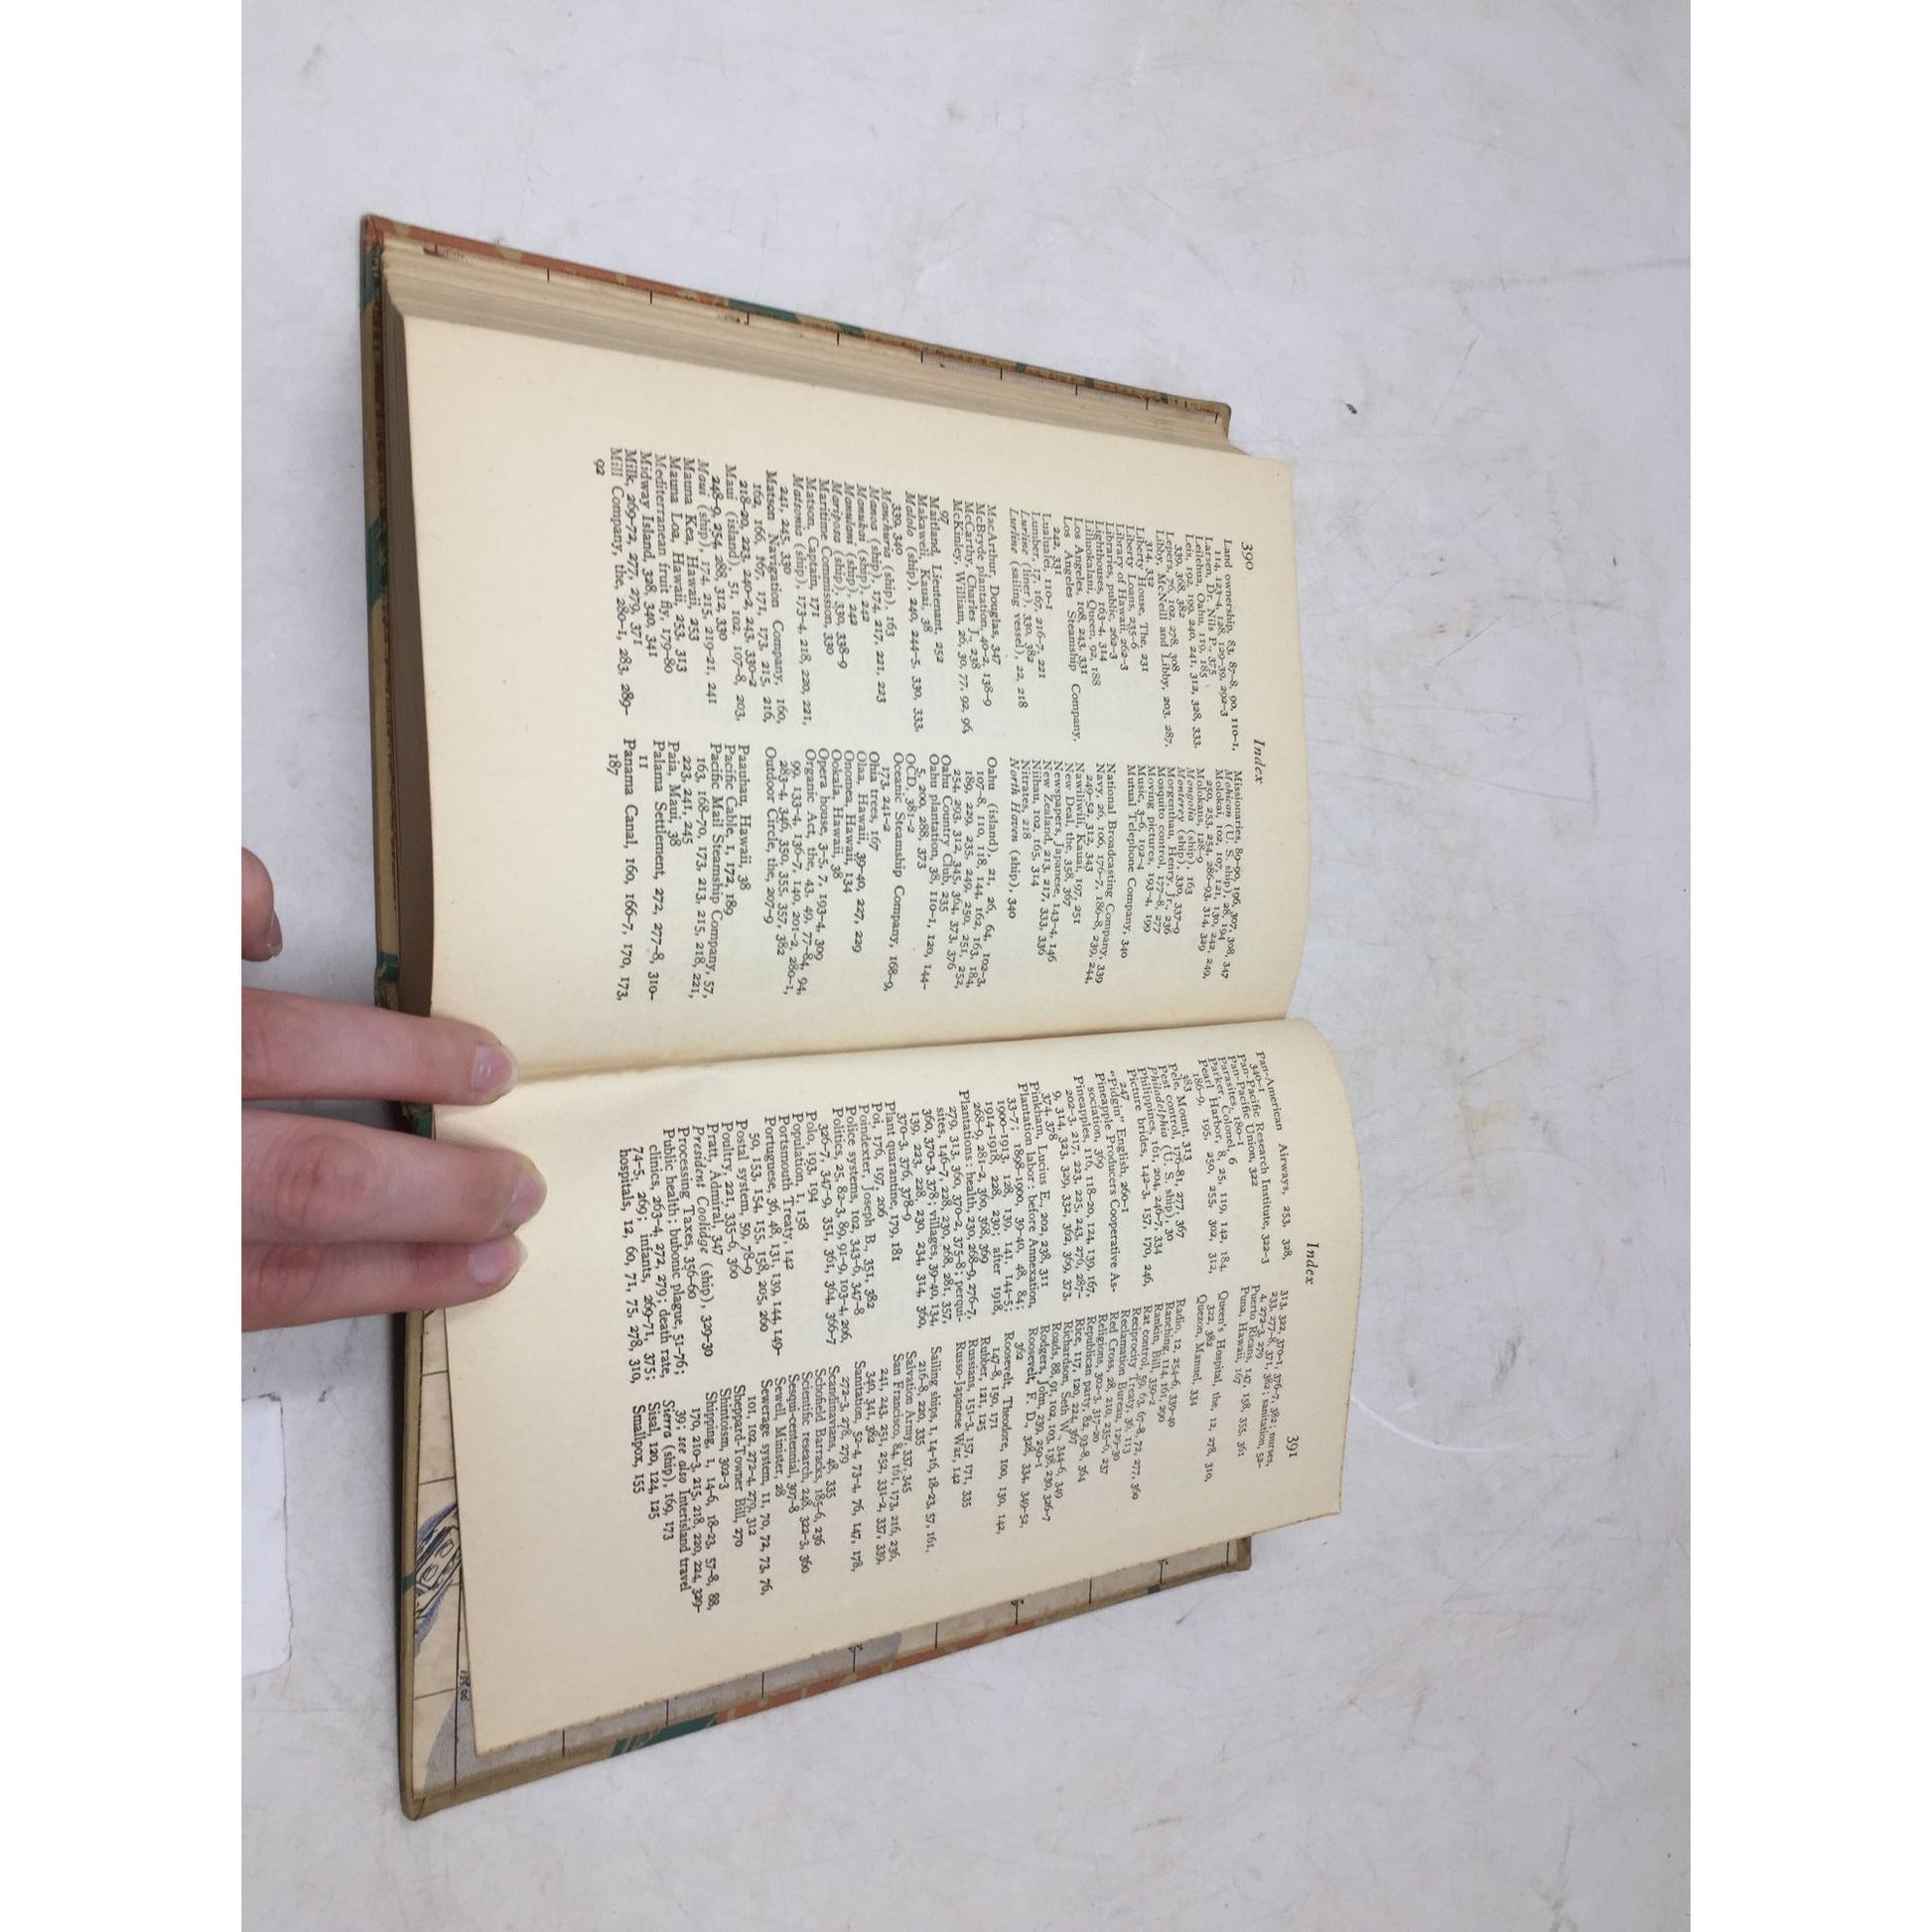 390
Index
Land ownership, 83, 87-8, 90, 110-1,
114, 123-4, 128, 129-39, 292-3
Larsen, Dr. Nils P., 375
Leilehua, Oahu, 119, 185
Leis, 192, 199, 240, 241, 312, 328, 333,
339, 368, 382
Lepers, 76, 102, 278, 308
Libby, McNeill and Libby, 203, 287,
314, 332
Liberty House, The, 231
Liberty Loans, 235-6
Library of Hawaii, 262-3
Libraries, public, 262-3
Lighthouses, 163-4, 314
Liliuokalani, Queen, 92, 188
Los Angeles, 108, 243, 331
Los Angeles Steamship Company,
242, 331
Lualualei, 110-1
Lumber, 17, 167, 216-7, 221
Lurline (liner), 330, 382
Lurline (sailing vessel), 22, 218
MacArthur, Douglas, 347
McBryde plantation, 40-2, 138-9
McCarthy, Charles J., 238
McKinley, William, 26, 30, 77, 92, 96,
97
Maitland, Lieutenant, 252
Makaweli, Kauai, 38
Malolo (ship), 240, 244-5, 330, 333,
339, 340
Manchuria (ship), 163
Manoa (ship), 174, 217, 221, 223
Manukai (ship), 242
Manulani (ship), 242
Mariposa (ship), 330, 338-9
Maritime Commission, 330
Matson, Captain, 171
Matsonia (ship), 173-4, 218, 220, 221,
241, 245, 330
Matson Navigation Company, 160,
162, 166, 167, 171, 173, 215, 216,
218-20, 223, 240-2, 243, 330-2
Maui (island), 51, 102, 107-8, 203,
248-9, 254, 288, 312, 330
Maui (ship), 174, 215, 219-21, 241
Mauna Kea, Hawaii, 253
Mauna Loa, Hawaii, 253, 313
Mediterranean fruit fly, 179-80
Midway Island, 328, 340, 341
Milk, 269-72, 277, 279, 371
Mill Company, the, 280-1, 283, 289-
92
Missionaries, 89-90, 196, 307, 308, 347
Mohican (U. S. ship), 28, 194
Molokai, 102, 107, 121, 130, 242, 249,
250, 253, 254, 286-93, 314, 329
Molokans, 128-9
Mongolia (ship), 163
Monterey (ship), 330, 337-9
Morgenthau, Henry, Jr., 236
Mosquito control, 177-8, 277
Moving pictures, 193-4, 199
Music, 3-6, 192-4
Mutual Telephone Company, 340
National Broadcasting Company, 339
Navy, 26, 106, 176-7, 186-8, 239, 244,
249-52, 312, 343
Nawiliwili, Kauai, 197, 251
New Deal, the, 358, 367
Newspapers, Japanese, 143-4, 146
New Zealand, 213, 217, 333, 336
Niihau, 102, 165, 314
Nitrates, 218
North Haven (ship), 340
Oahu (island), 21, 26, 64, 102-3,
107-8, 110, 118, 144, 162, 163, 184,
189, 229, 235, 249, 250, 251, 252,
254, 293, 312, 345, 364, 373, 376
Oahu Country Club, 235
Oahu plantation, 38, 110-1, 120, 144-
5, 200, 288, 373
OCD, 381-2
Oceanic Steamship Company, 168-9,
173, 241-2
Ohia trees, 167
Olaa, Hawaii, 39-40, 227, 229
Onomea, Hawaii, 134
Ookala, Hawaii, 38
Opera house, 3-5, 7, 193-4, 309
Organic Act, the, 43, 49, 77-84, 94,
99, 133-4, 136-7, 140, 201-2, 280-1,
283-4, 346, 350, 355, 357, 382
Outdoor Circle, the, 207-9
Paauhau, Hawaii, 38
Pacific Cable, 1, 172, 189
Pacific Mail Steamship Company, 57,
163, 168-70, 173, 213, 215, 218, 221,
223, 241, 245
Paia, Maui, 38
Palama Settlement, 272, 277-8, 310-
11
Panama Canal, 160, 166-7, 170, 173,
187
Index
391
Pan-American Airways, 253, 328,
340-1
Pan-Pacific Research Institute, 322-3
Pan-Pacific Union, 322
Parasites, 180-1
Parker, Colonel, 6
Pearl Harbor, 8, 25, 119, 142, 184,
186-9, 195, 250, 255, 302, 312,
383
Pele, Mount, 313
Pest control, 176-81, 277, 367
Philadelphia (U. S. ship), 30
Philippines, 161, 204, 246-7, 334
Picture brides, 142-3, 157, 170, 246,
247
"Pidgin" English, 260-1
Pineapple Producers Cooperative As-
sociation, 369
Pineapples, 116, 118-20, 124, 139, 167,
202-3, 217, 223, 225, 243, 276, 287-
9, 314, 323, 329, 332, 362, 369, 373,
374, 378
Pinkham, Lucius E., 202, 238, 311
Plantation labor: before Annexation,
33-7; 1898-1900, 39-40, 48, 84;
1900-1913, 128, 139, 141, 144-5;
1914-1918, 228, 230; after 1918,
268-9, 281-2, 360, 368, 369
Plantations: health, 230, 268-9, 276-7,
279, 313, 360, 370-2, 375-8; perqui-
sites, 146-7, 228, 230, 268, 281, 357,
360, 370-3, 378; villages, 39-40, 134,
139, 223, 228, 230, 234, 314, 360,
370-3, 376, 378-9
Plant quarantine, 179, 181
Poi, 176, 197, 206
Poindexter, Joseph B., 351, 382
Police systems, 102, 343-6, 347-8
Politics, 25, 82-3, 89, 91-9, 103-4, 206,
326-7, 347-9, 351, 361, 364, 366-7
Polo, 193, 194
Population, 1, 158
Portsmouth Treaty, 142
Portuguese, 36, 48, 131, 139, 144, 149-
50, 153, 154, 155, 158, 205, 260
Postal system, 59, 78-9
Poultry, 221, 335-6, 360
Pratt, Admiral, 347
President Coolidge (ship), 329-30
Processing Taxes, 356-60
Public health; bubonic plague, 51-76;
clinics, 263-4, 272, 279; death rate,
74-5, 269; infants, 269-71, 375;
hospitals, 12, 60, 71, 75, 278, 310,
313, 322, 370-1, 376-7, 382; nurses,
233, 277-8, 371, 382; sanitation, 52-
4, 272-3, 279
Puerto Ricans, 147, 158, 355, 361
Puna, Hawaii, 167
Queen's Hospital, the, 12, 278, 310,
322, 382
Quezon, Manuel, 334
Radio, 12, 254-6, 339-40
Ranching, 114, 161, 290
Rankin, Bill, 350-2
Rat control, 59, 63, 67-8, 72, 277, 360
Reciprocity Treaty, 36, 113
Reclamation Bureau, 129-30
Red Cross, 28, 210, 235-6, 237
Religions, 302-3, 317-20
Republican party, 82, 93-8, 364
Rice, 117, 120, 224, 367
Richardson, Seth W., 344-6, 349
Roads, 88, 91, 102, 103, 138, 230, 326-7
Rodgers, John, 239, 250-1
Roosevelt, F. D., 328, 334, 349-52,
362
Roosevelt, Theodore, 100, 130, 142,
147-8, 150, 171
Rubber, 121, 125
Russians, 151-3, 157, 171, 335
Russo-Japanese War, 142
Sailing ships, 1, 14-16, 18-23, 57, 161,
216-8, 220, 335
Salvation Army, 337, 345
San Francisco, 84, 161, 173, 216, 236,
241, 243, 251, 252, 331-2, 337, 339,
340, 341, 382
Sanitation, 52-4, 73-4, 76, 147, 178,
272-3, 278, 279
Scandinavians, 48, 335
Schofield Barracks, 185-6, 236
Scientific research, 248, 322-3, 360
Sesqui-centennial, 307-8
Sewell, Minister, 28
Sewerage system, 11, 70, 72, 73, 76,
101, 102, 272-4, 279, 312
Sheppard-Towner Bill, 270
Shintoism, 302-3
Shipping, 1, 14-6, 18-23, 57-8, 88,
170, 210-3, 215, 218, 220, 224, 329-
39; see also Interisland travel
Sierra (ship), 169, 173
Sisal, 120, 124, 125
Smallpox, 155